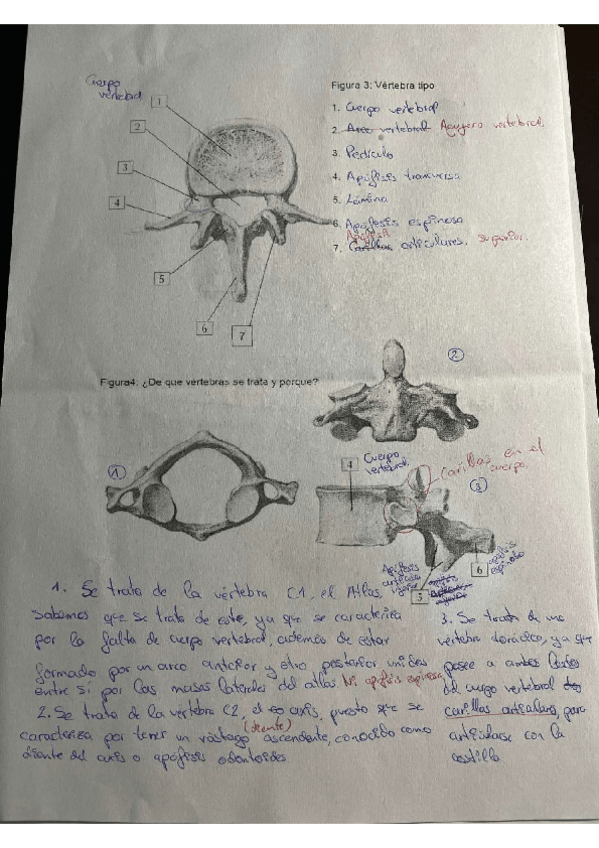 Cuerpo
vertebral
1
2
3
4
5
6
7
Figura 3: Vértebra tipo
1. Cuerpo vertebral
2. Arco vertebral Agujero vertebral.
3. Pedículo
4. Apófisis transversa
5. Lámina
6. Apófisis espinosa
Apófisis
7. Carillas articulares. superior.
Figura4: ¿De que vértebras se trata y porque?
2
1
4
Cuerpo
vertebral
Carillas en el
cuerpo.
3
6
Apófisis
espinosa
Apófisis
articular
5
1. Se trata de la vértebra C1, el Atlas.
Sabemos que se trata de este, ya que se caracteriza
por la falta de cuerpo vertebral, además de estar
formado por un arco anterior y otro posterior unidos
entre sí por las masas laterales del atlas. Ni apófisis espinosa
2. Se trata de la vértebra C2, el axis, puesto que se
caracteriza por tener un vástago (diente) ascendente, conocido como
diente del axis o apófisis odontoides
3. Se trata de una
vértebra torácica, ya que
posee a ambos lados
del cuerpo vertebral
carillas articulares, para
articularse con la
costilla